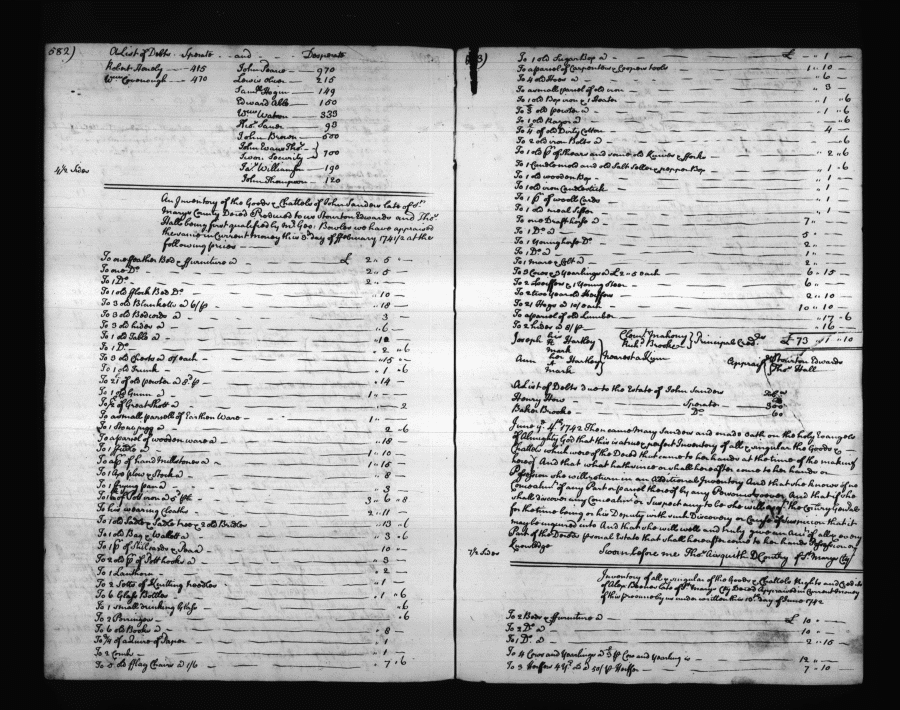 582)
A List of Debts Sperate and Desperate
Robert Hendly 415 John Pearce 970
Wm. Cavenough 470 Lewis Oliver 215
Saml. Hagur 149
Edward Able 160
Wm Watson 333
Tho. Saner 93
John Brown 600
John Evans Tho.
Swon Security } 700
Jas. Williams 190
John Thompson 120
4½ Sides
An Inventory of the Goods & Chattels of John Sanders late of St.
Marys County Deced Produced to us Stourton Edwards and Tho.
Hall being first qualified by Mr Geo: Bowles we have appraised
the same in Current money this 3d. day of February 1741/2 at the
following prices
To one feather Bed & furniture a £ 2 " 5 "
To one Do. 2 " 5
To 1 Do. 2 "
To 1 old flock Bed Do. " 10 –
To 3 old Blanketts a 6/p " 18 –
To 3 old Bedcords a 3 –
To 3 old hides a " 6 –
To 1 old Table a 12
To 1 Do. 2 " 6
To 3 old Chests a 5/ each " 15 "
To 1 old Trunk 1 " 6
To 21 of old pewter a 8d. p " 14 –
To 1 old Gunn a 1 " –
To of Great Shott a 2
To a small parcell of Earthen Ware 1 " –
To 1 Stone jugg a 2 – 6
To a parcel of wooden ware a " 18 –
To 1 a 1 " 10
To a pr. of hand Millstones a " 15 –
To 1 Axe plow & Stock a " 8 –
To 1 frying pan a " 3 –
To of Pot iron a 3 " 6 " 8
To his wearing Cloaths 2 " 11 –
To 1 old Saddle & Saddle tree & 2 old Bridles " 13 " 6
To 1 old Bag & Wallett a " 3 – 6
To 1 pr. of Stileards & Pea a 10 –
To 2 old pr. of Pott hooks a " 3 –
To 1 Lanthorn " 2 –
To 2 Setts of Knitting needles 1
To 6 Glass Bottles 1 " 6
To 1 small drinking Glass " 6
To 2 Porringers " 6
To 6 old Books a " 8 –
To ¾ of a Quire of Paper " 1
To 2 Combs " 1 –
To 5 old flag Chairs a 1/6 " 7 " 6
To 1 old Sugar Box a £ " 1 "
To a parcel of Carpenters & Coopers tools 1 " 10
To 4 old Hoes a " 6 –
To a small parcel of old iron " 3
To 1 old Box iron & 1 Heater " 1 " 6
To 3 old pewter a " 1 " 6
To 1 old Razor a " 6
To 4 of old Dirty Cotton 4 –
To 2 old iron Bolts a " 6
To 1 old pr. of Shears and some old Knives & forks " 2 " 6
To 1 Candlemold and old Salt Seller & pepper Box " 1 – 6
To 1 old wooden Box " 1 –
To 1 old iron Candlestick " 1
To 1 pr. of wooll Cards " 1 –
To 1 old meal Sifter " 1
To one Draft horse a 7 "
To 1 Do. a 5 "
To 1 Young horse Do. 2 " –
To 1 Do. a 1 "
To 1 mare & Colt a 2 " –
To 3 Cows & 3 Yearlings a £ 2 – 5 each 6 – 15 –
To 2 heiffers & 1 Young Steer 6 " –
To 2 two Year old Heiffers 2 " 10
To 21 Hogs a 10/ each 10 " 10 –
To a parcel of old Lumber " 17 – 6
To 2 hides a 8/p " 16 –
£ 73 " 1 " 10
Joseph Harkey Clemt. Mahony } Principal Credrs.
mark Richd. Brooke
Ann Harkey } nearest a Kin Appraisrs. { Stourton Edwards
mark Tho. Hall
A List of Debts due to the Estate of John Sanders
Henry How Sperate 300
Baker Brooke Do. 60
June ye. 4th. 1742 Then came Mary Sanders and made oath on the holy Evangels
of Almighty God that this is a true & perfect Inventory of all & singular the Goods &
Chattels which were of the Deced that came to her hands at the time of the making
hereof And that what hath since or shall hereafter come to her hands or
Possession she will return in an Additional Inventory And that she knows of no
Concealmt. of any Part or parcel thereof by any Person whatsoever And that if she
shall discover any Concealmt. or Suspect any to be she will acqt. the Comry General
for the time being or his Deputy with such Discovery or Cause of Suspicion that it
may be inquired into And that she will well and truly give an Acct. of all & every
Part of the Deceds personal Estate that shall hereafter come to her hands Possession or
Knowledge Sworn before me Tho. Aisquith D Comry of St. Marys Cty
7/2 Sides
Inventory of all & singular of the Goods & Chattels Rights and Credits
of Alex Boones late of St. Marys Cty Deced Appraised in Current Money
of this province by us under written this 19th. day of June 1742
To 2 Beds & furniture a £ 10 "
To 2 Do. a 10 " –
To 1 Do. a 2 " 15 –
To 4 Cows and Yearlings a £3 p Cow and Yearling is 12 " –
To 3 Heiffers 4 Yr. old a 50/ p Heiffer 7 " 10